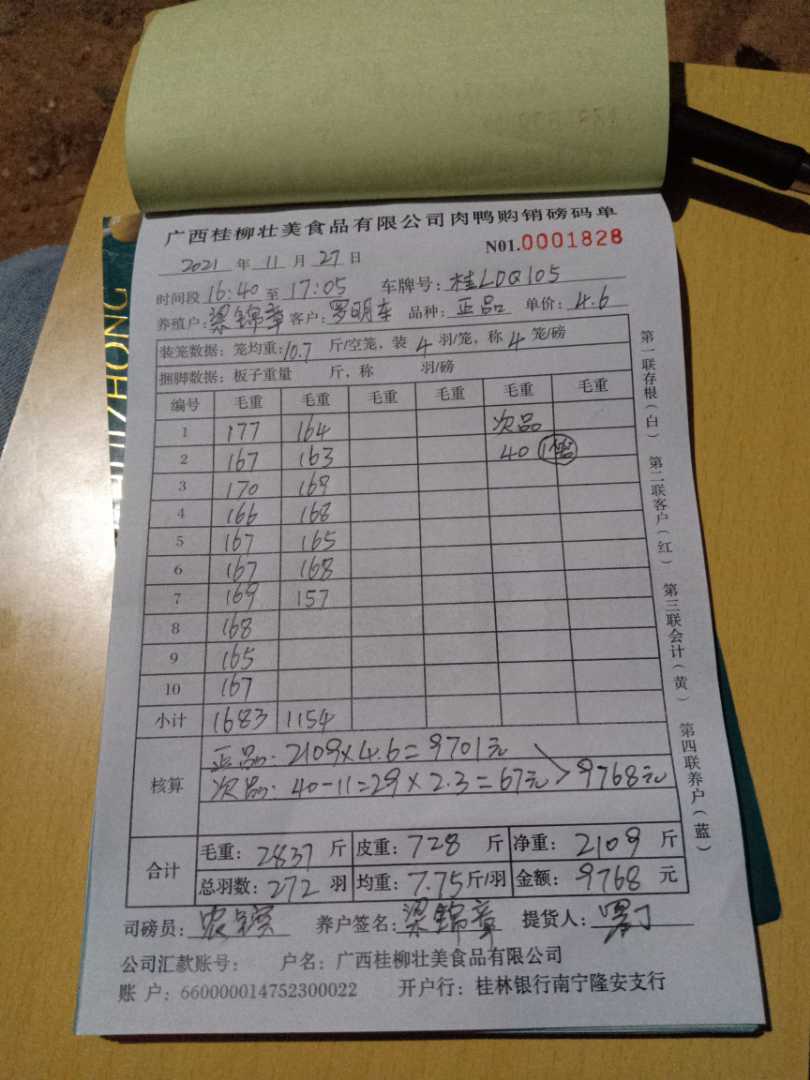 广西桂柳壮美食品有限公司肉鸭购销磅码单
N01.0001828
2021 年 11 月 27 日
时间段 16:40 至 17:05 车牌号: 桂LDQ105
养殖户: 梁锦章 客户: 罗明车 品种: 正品 单价: 4.6
装笼数据: 笼均重: 10.7 斤/空笼, 装 4 羽/笼, 称 4 笼/磅
捆脚数据: 板子重量 斤, 称 羽/磅
编号 毛重 毛重 毛重 毛重 毛重 毛重
1 177 164 次品
2 167 163 40
3 170 169
4 166 168
5 167 165
6 167 168
7 169 157
8 168
9 165
10 167
小计 1683 1154
核算
正品: 2109×4.6=9701元
次品: 40-11=29×2.3=67元 > 9768元
合计
毛重: 2837 斤 皮重: 728 斤 净重: 2109 斤
总羽数: 272 羽 均重: 7.75 斤/羽 金额: 9768 元
司磅员: 养户签名: 梁锦章 提货人:
公司汇款账号: 户名: 广西桂柳壮美食品有限公司
账 户: 660000014752300022 开户行: 桂林银行南宁隆安支行
第一联存根(白) 第二联客户(红) 第三联会计(黄) 第四联养户(蓝)
ZHONG